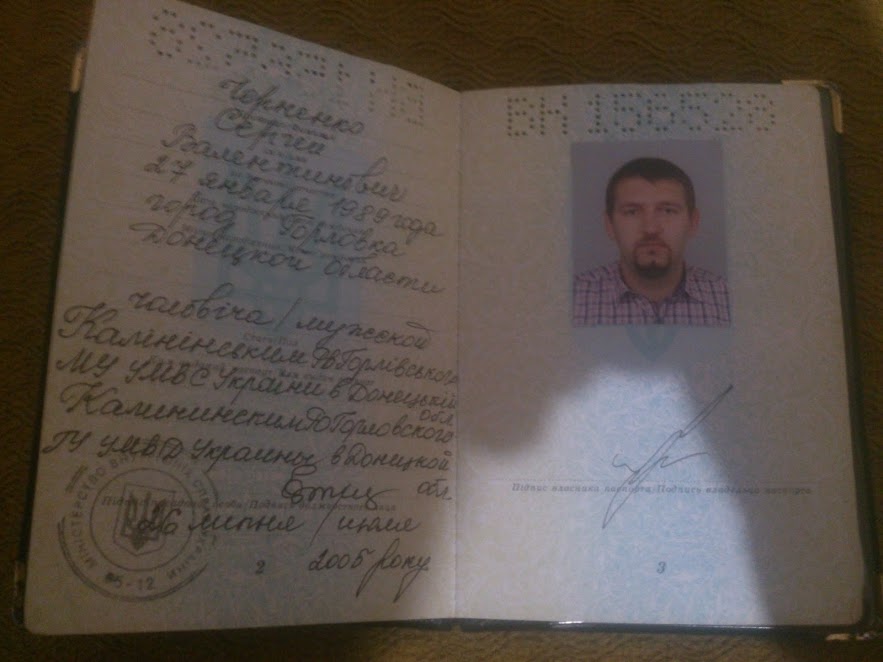 Черненко
Сергей
Валентинович
27 января 1989 года
город Горловка
Донецкой области
чоловіча / мужской
Калінінським РВ Горлівського
МУ УМВС України в Донецькій обл
Калининским РО Горловского
ГУ УМВД Украины в Донецкой обл
26 липня / июля
2005 року
2
05-12
ВК 156528
Підпис власника паспорта/Подпись владельца паспорта
3